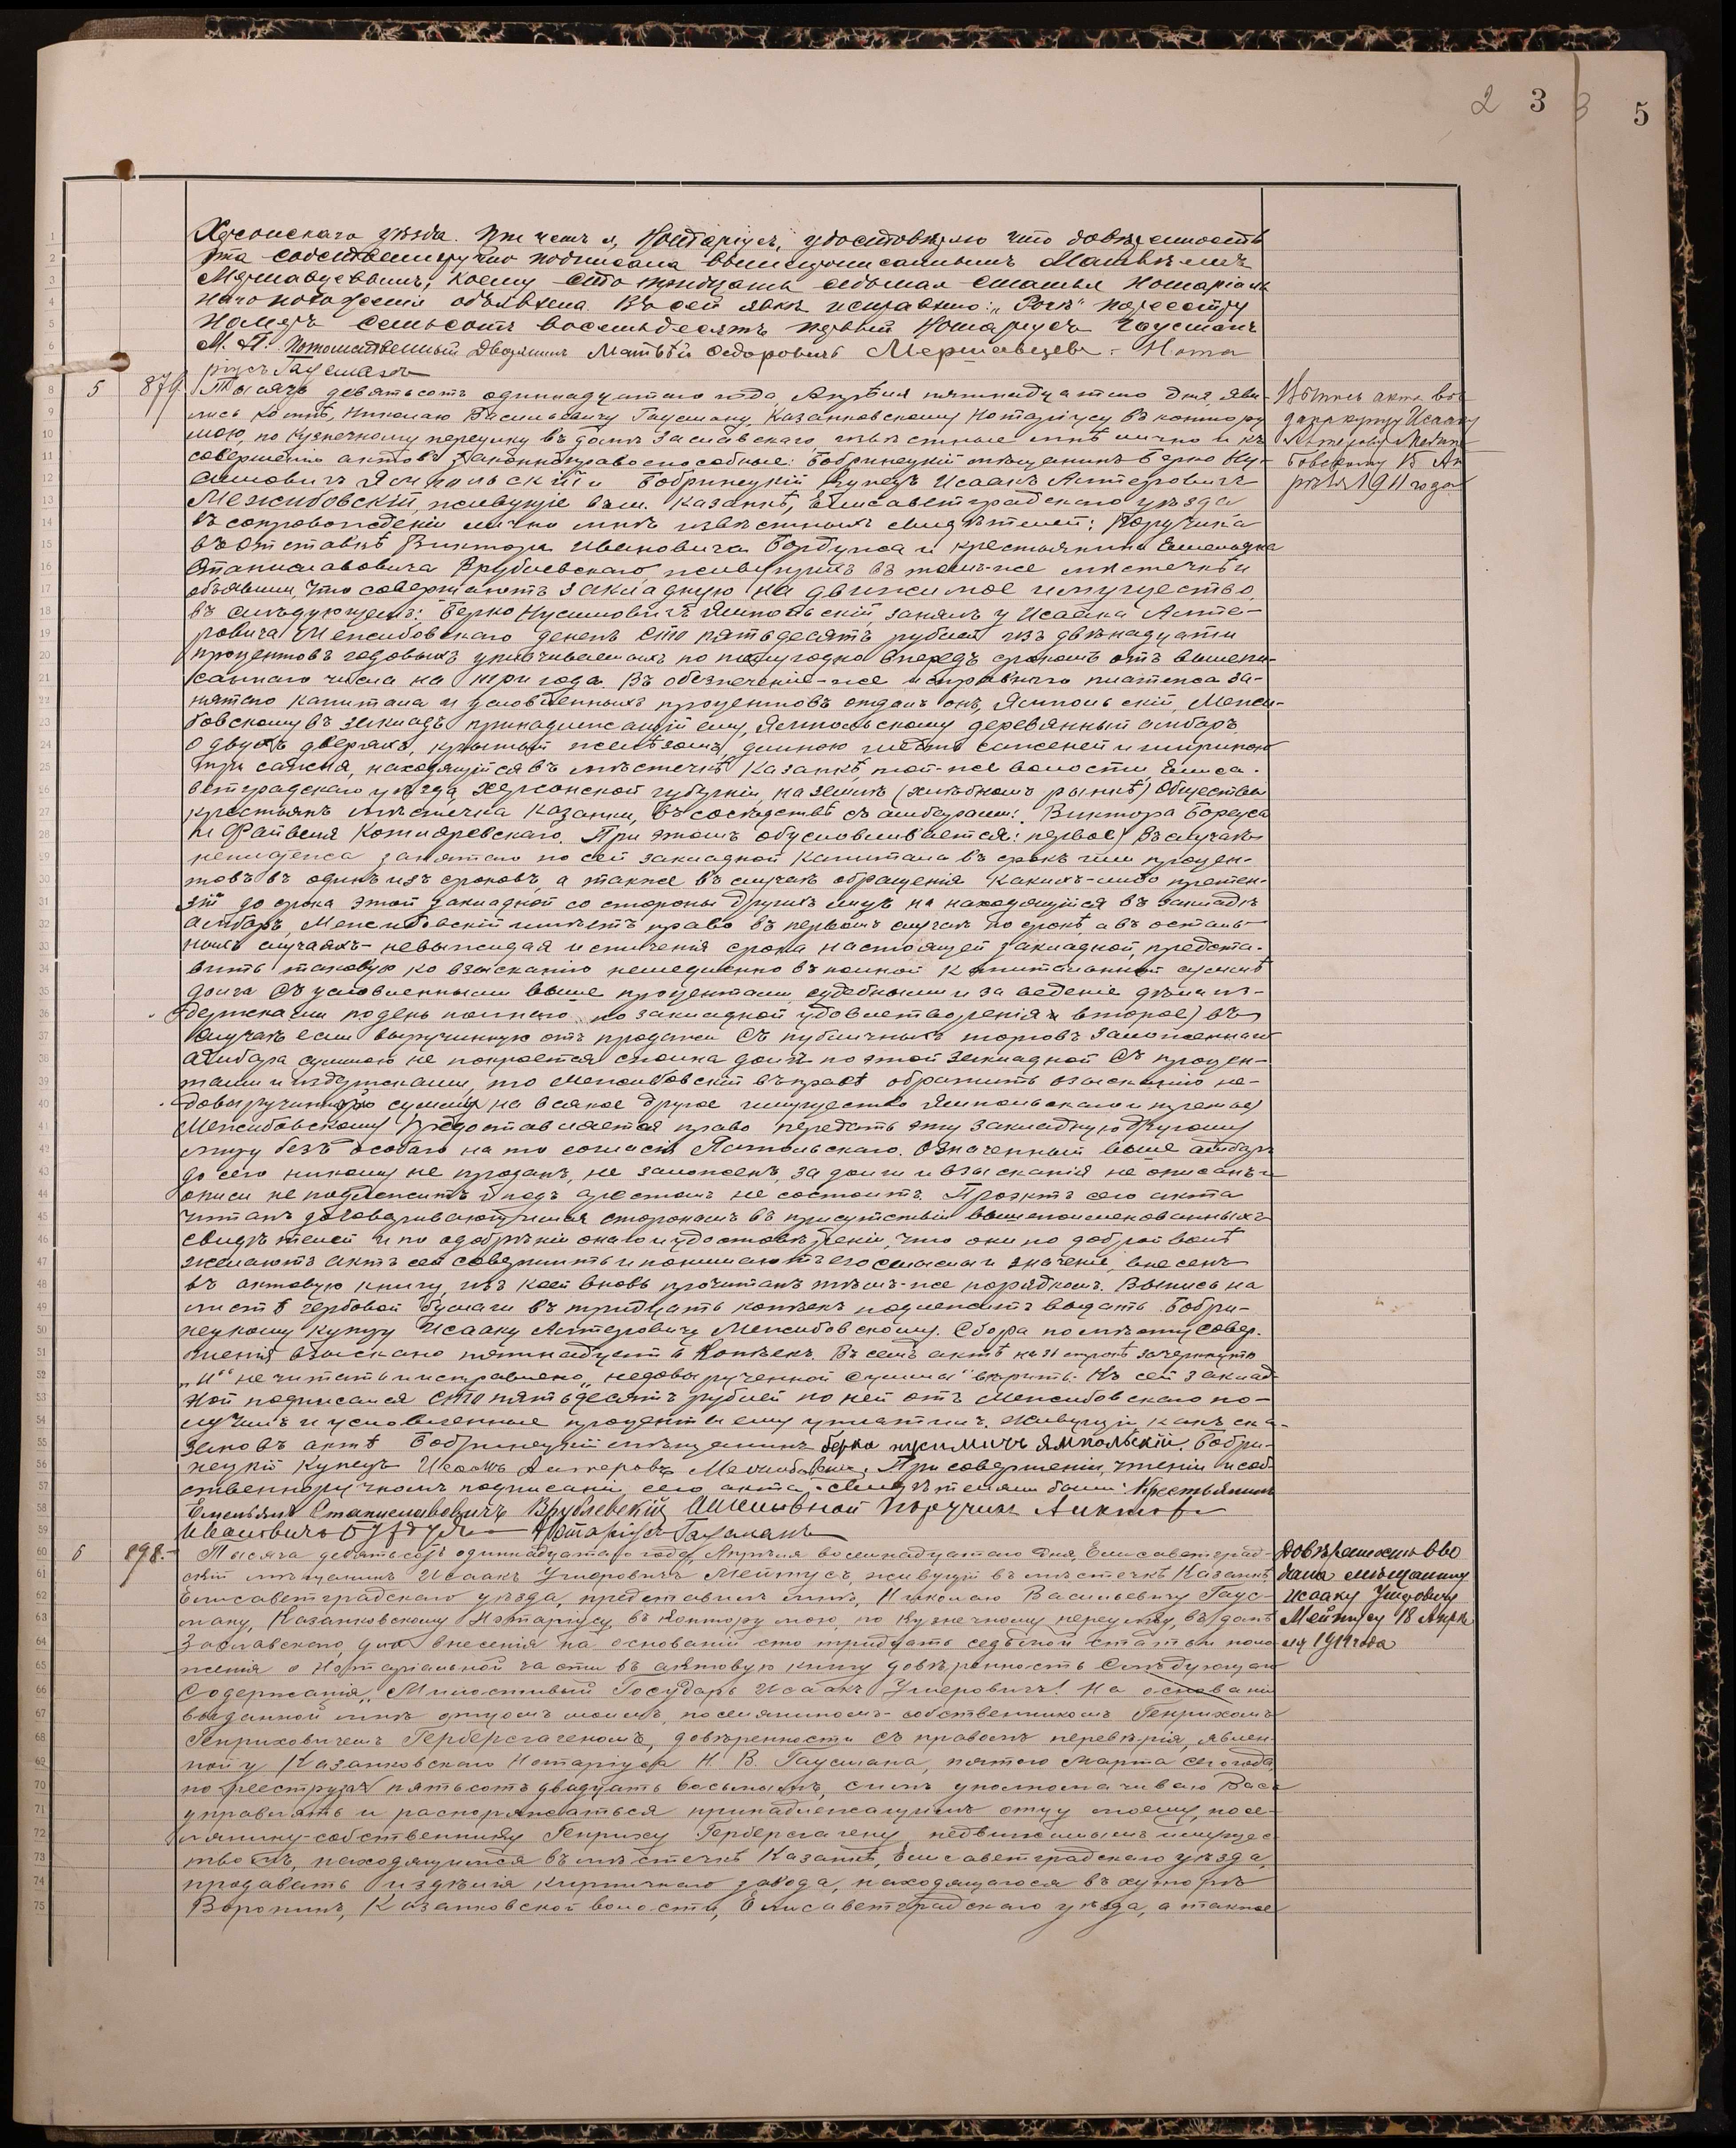 2 3 3 5
Херсонскаго уѣзда. При чемъ я, Нотаріусъ, удостовѣряю что довѣренность
эта собственноручно подписана вышепрописаннымъ Матвѣемъ
Мержавцевымъ, коему сто тридцать седьмая статья Нотаріаль
наго положенія объявлена. Въ сей явкѣ исправлено: „ по реестру
Номеръ семьсотъ восемьдесятъ первый Нотаріусъ Гаусманъ
М. П. Потомственный Дворянинъ Матвѣй Федоровичъ Мержавцевъ. Нота
ріусъ Гаусманъ
5 879 Тысяча девятьсотъ одиннадцатаго года, Апрѣля пятнадцатаго дня яви-
лись ко мнѣ, Николаю Васильевичу Гаусману, Казанковскому Нотаріусу въ контору
мою, по Кузнечному переулку въ домѣ Заславскаго извѣстные мнѣ лично и къ
совершенію актовъ законно правоспособные: Бобринецкій мѣщанинъ Берко Ну-
симовичъ Ямпольскій и Бобринецкій Купецъ Исаакъ Алтеровичъ
Межибовскій, живущіе въ м. Казанкѣ, Елисаветградскаго уѣзда
въ сопровожденіи лично мнѣ извѣстныхъ свидѣтелей: Поручика
въ отставкѣ Виктора Ивановича и крестьянина Емельяна
Станиславовича Врублевскаго, живущихъ въ томъ-же мѣстечкѣ и
объявили, что совершаютъ закладную на движимое имущество
въ слѣдующемъ: Берко Нусимовичъ Ямпольскій, занялъ у Исаака Алте-
ровича Межибовскаго денегъ сто пятьдесятъ рублей изъ двѣнадцати
процентовъ годовыхъ уплачиваемыхъ по полугодно впередъ срокомъ отъ вышепи-
саннаго числа на три года. Въ обезпеченіе-же исправнаго платежа за-
нятаго капитала и условленныхъ процентовъ отдалъ онъ, Ямпольскій, Межи-
бовскому въ закладъ принадлежащій ему, Ямпольскому деревянный амбаръ
о двухъ дверяхъ, крытый желѣзомъ, длиною саженей и шириною
три сажня, находящійся въ мѣстечкѣ Казанкѣ, той-же волости, Елиса-
ветградскаго уѣзда, Херсонской губерніи, на землѣ (хлѣбномъ рынкѣ) Общества
крестьянъ мѣстечка Казанки, въ сосѣдствѣ съ амбарами: Виктора
и Файвеля Котляревскаго. При этомъ обусловливается: первое) въ случаѣ
неплатежа занятаго по сей закладной капитала въ срокъ или процен-
товъ въ одинъ изъ сроковъ, а также въ случаѣ обращенія какихъ-либо претен-
зій до срока этой закладной со стороны другихъ лицъ на находящійся въ закладѣ
амбаръ, Межибовскій имѣетъ право въ первомъ случаѣ по срокѣ, а въ осталь-
ныхъ случаяхъ - невыжидая истеченія срока настоящей закладной, предста-
вить таковую ко взысканію немедленно въ полной капитальной суммѣ
долга съ условленными выше процентами судебными и за веденіе дѣла из-
держками по день полнаго по закладной удовлетворенія и второе) въ
случаѣ если вырученною отъ продажи съ публичныхъ торговъ заложеннаго
амбара суммою не покроется сполна долгъ по этой закладной съ процен-
тами и издержками, то Межибовскій въ правѣ обратить взысканіе не-
довырученной суммы на всякое другое имущество Ямпольскаго и третье)
Межибовскому предоставляется право передать эту закладную другому
лицу безъ особаго на то согласія Ямпольскаго. Означенный выше амбаръ
до сего никому не проданъ, не заложенъ, за долги и взысканія не описанъ и
описи не подлежитъ и подъ арестомъ не состоитъ. Проэктъ сего акта
читанъ договаривающимся сторонамъ въ присутствіи вышепоименованныхъ
свидѣтелей и по одобреніи онаго и удостовѣреніи, что они по доброй волѣ
желаютъ актъ сей совершить и понимаютъ его смыслъ и значеніе, внесенъ
въ актовую книгу, изъ коей вновь прочитанъ тѣмъ-же порядкомъ. Выпись на
листѣ гербовой бумаги въ тридцать копѣекъ подлежитъ выдать Бобри-
нецкому купцу Исааку Алтеровичу Межибовскому. Сбора по мѣсту совер-
шенія взыскано пятнадцать копѣекъ. Въ семъ актѣ на 31 строкѣ зачеркнуто
„и“ не читать и исправлено „недовырученной суммы“ вѣрить. Къ сей заклад-
ной подписался сто пятьдесятъ рублей по ней отъ Межибовскаго по-
лучилъ и условленные проценты ему уплатилъ. Живущій какъ ска-
зано въ актѣ Бобринецкій мѣщанинъ Берко Нусимичъ Ямпольскій. Бобри-
нецкій Купецъ Исаакъ Алтеровъ Межибовскій. При совершеніи, чтеніи и соб-
ственноручномъ подписаніи сего акта свидѣтелями были: Крестьянинъ
Емельянъ Станиславовичъ Врублевскій Поручикъ
Ивановичъ Нотаріусъ Гаусманъ
Выпись акта вы
дана купцу Исааку
Алтерову Межи
бовскому 15 Ап
рѣля 1911 года
6 898.- Тысяча девятьсотъ одиннадцатаго года, Апрѣля восемнадцатаго дня, Елисаветград-
скій мѣщанинъ Исаакъ Ушеровичъ Мейтусъ, живущій въ мѣстечкѣ Казанкѣ,
Елисаветградскаго уѣзда, представилъ мнѣ, Николаю Васильевичу Гаус-
ману, Казанковскому Нотаріусу, въ контору мою, по Кузнечному переулку, въ домѣ
Заславскаго, для внесенія на основаніи сто тридцать седьмой статьи поло-
женія о Нотаріальной части въ актовую книгу довѣренность слѣдующаго
содержанія „Милостивый Государь Исаакъ Ушеровичъ! На основаніи
выданной мнѣ отцомъ моимъ, поселяниномъ-собственникомъ Генрихомъ
Генриховичемъ довѣренности съ правомъ перевѣрія, явлен-
ной у Казанковскаго Нотаріуса Н. В. Гаусмана, пятого Марта сего года,
по реестру за № пятьсотъ двадцать восьмымъ, симъ уполномачиваю Васъ
управлять и распоряжаться принадлежащимъ отцу моему, посе-
лянину-собственнику Генриху недвижимымъ имущес-
твомъ, находящимся въ мѣстечкѣ Казанкѣ, Елисаветградскаго уѣзда,
продавать издѣлія кирпичнаго завода, находящагося въ хуторѣ
Воропинѣ, Казанковской волости, Елисаветградскаго уѣзда, а также
Довѣренность вы
дана мѣщанину
Исааку Ушеровичу
Мейтусу 18 Апрѣ
ля 1911 года